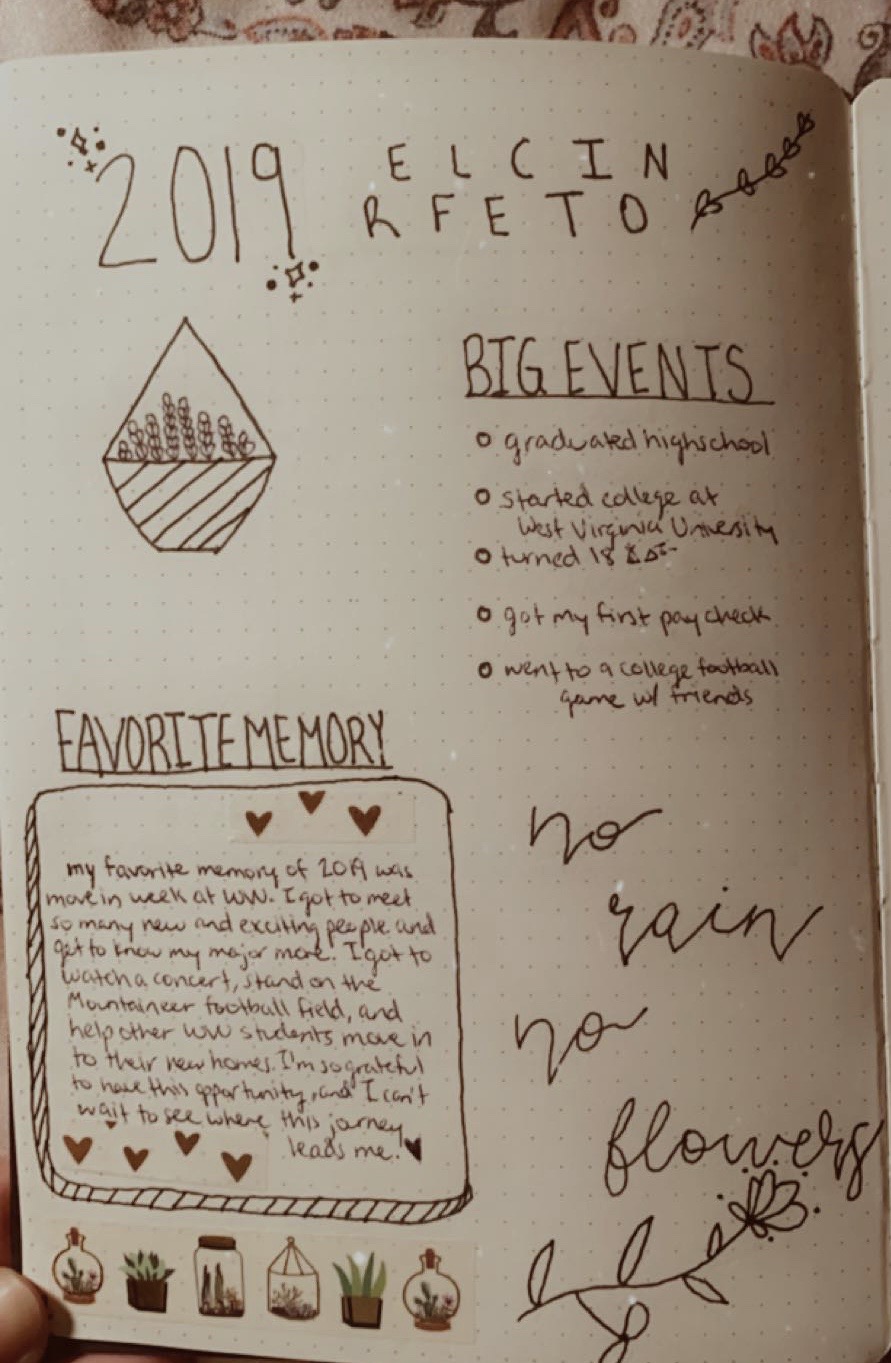 2019 E L C I N
R F E T O
BIG EVENTS
graduated highschool
started college at
West Virginia University
turned 18
got my first paycheck
went to a college football
game w/ friends
FAVORITE MEMORY
my favorite memory of 2019 was
move in week at WVU. I got to meet
so many new and exciting people and
get to know my major more. I got to
watch a concert, stand on the
Mountaineer football field, and
help other WVU students move in
to their new homes. I'm so grateful
to have this opportunity, and I can't
wait to see where this jorney
leads me.
no
rain
no
flowers